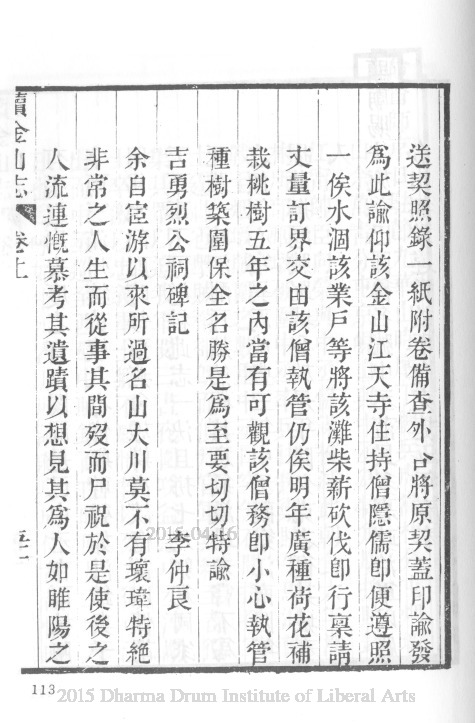 送契照錄一紙附卷備查外合將原契蓋印諭發
為此諭仰該金山江天寺住持僧隱儒卽便遵照
一俟水涸該業戶等將該灘柴薪砍伐卽行稟請
丈量訂界交由該僧執管仍俟明年廣種荷花補
栽桃樹五年之內當有可觀該僧務卽小心執管
種樹築圍保全名勝是爲至要切切特諭
吉勇烈公祠碑記 李仲良
余自宦游以來所過名山大川莫不有瓌瑋特絕
非常之人生而從事其間歿而尸祝於是使後之
人流連慨慕考其遺蹟以想見其爲人如睢陽之
續金山志 卷上
2015-04-16
113
2015 Dharma Drum Institute of Liberal Arts